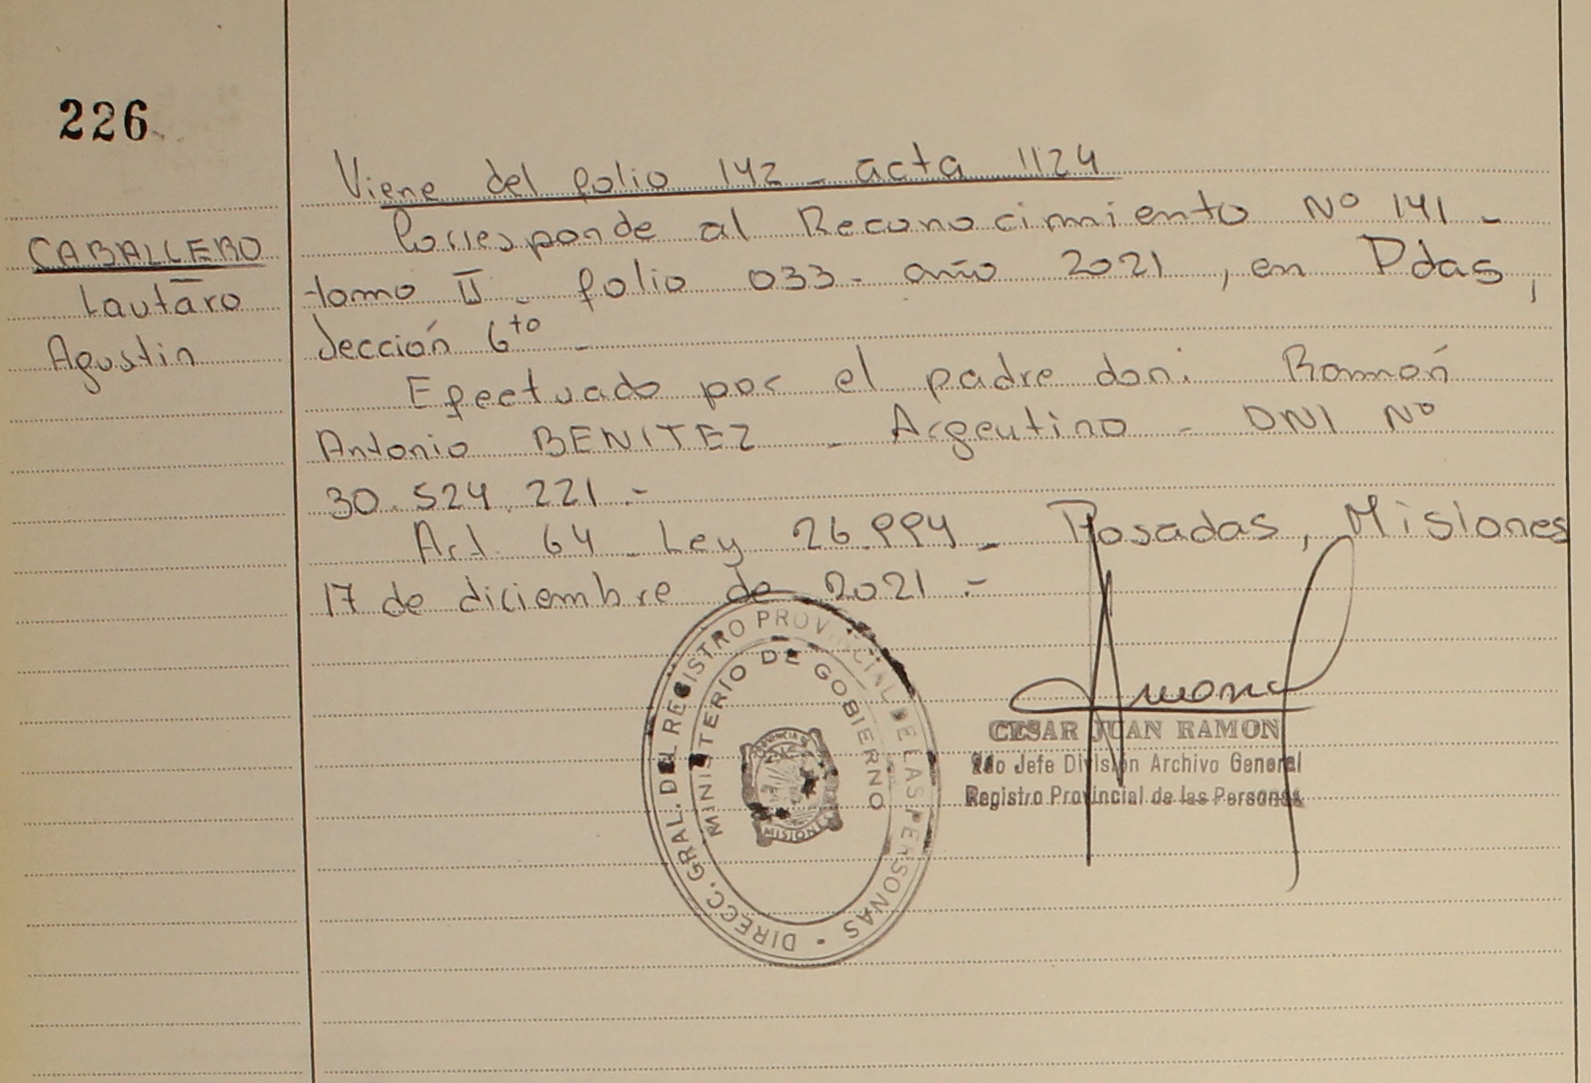 226
CABALLERO
Lautaro
Agustin
Viene del folio 142 - acta 1124
Corresponde al Reconocimiento Nº 141 -
tomo II - folio 033 - año 2021, en Pdas,
Sección 6to -
Efectuado por el padre don: Ramón
Antonio BENITEZ - Argentino - DNI Nº
30.524.221.-
Art. 64 - Ley 26.994 - Posadas, Misiones
17 de diciembre de 2021.-
DIRECC. GRAL. DEL REGISTRO PROVINCIAL DE LAS PERSONAS
MINISTERIO DE GOBIERNO
PROVINCIA D
MISIONES
CESAR JUAN RAMON
2do Jefe División Archivo General
Registro Provincial de las Personas